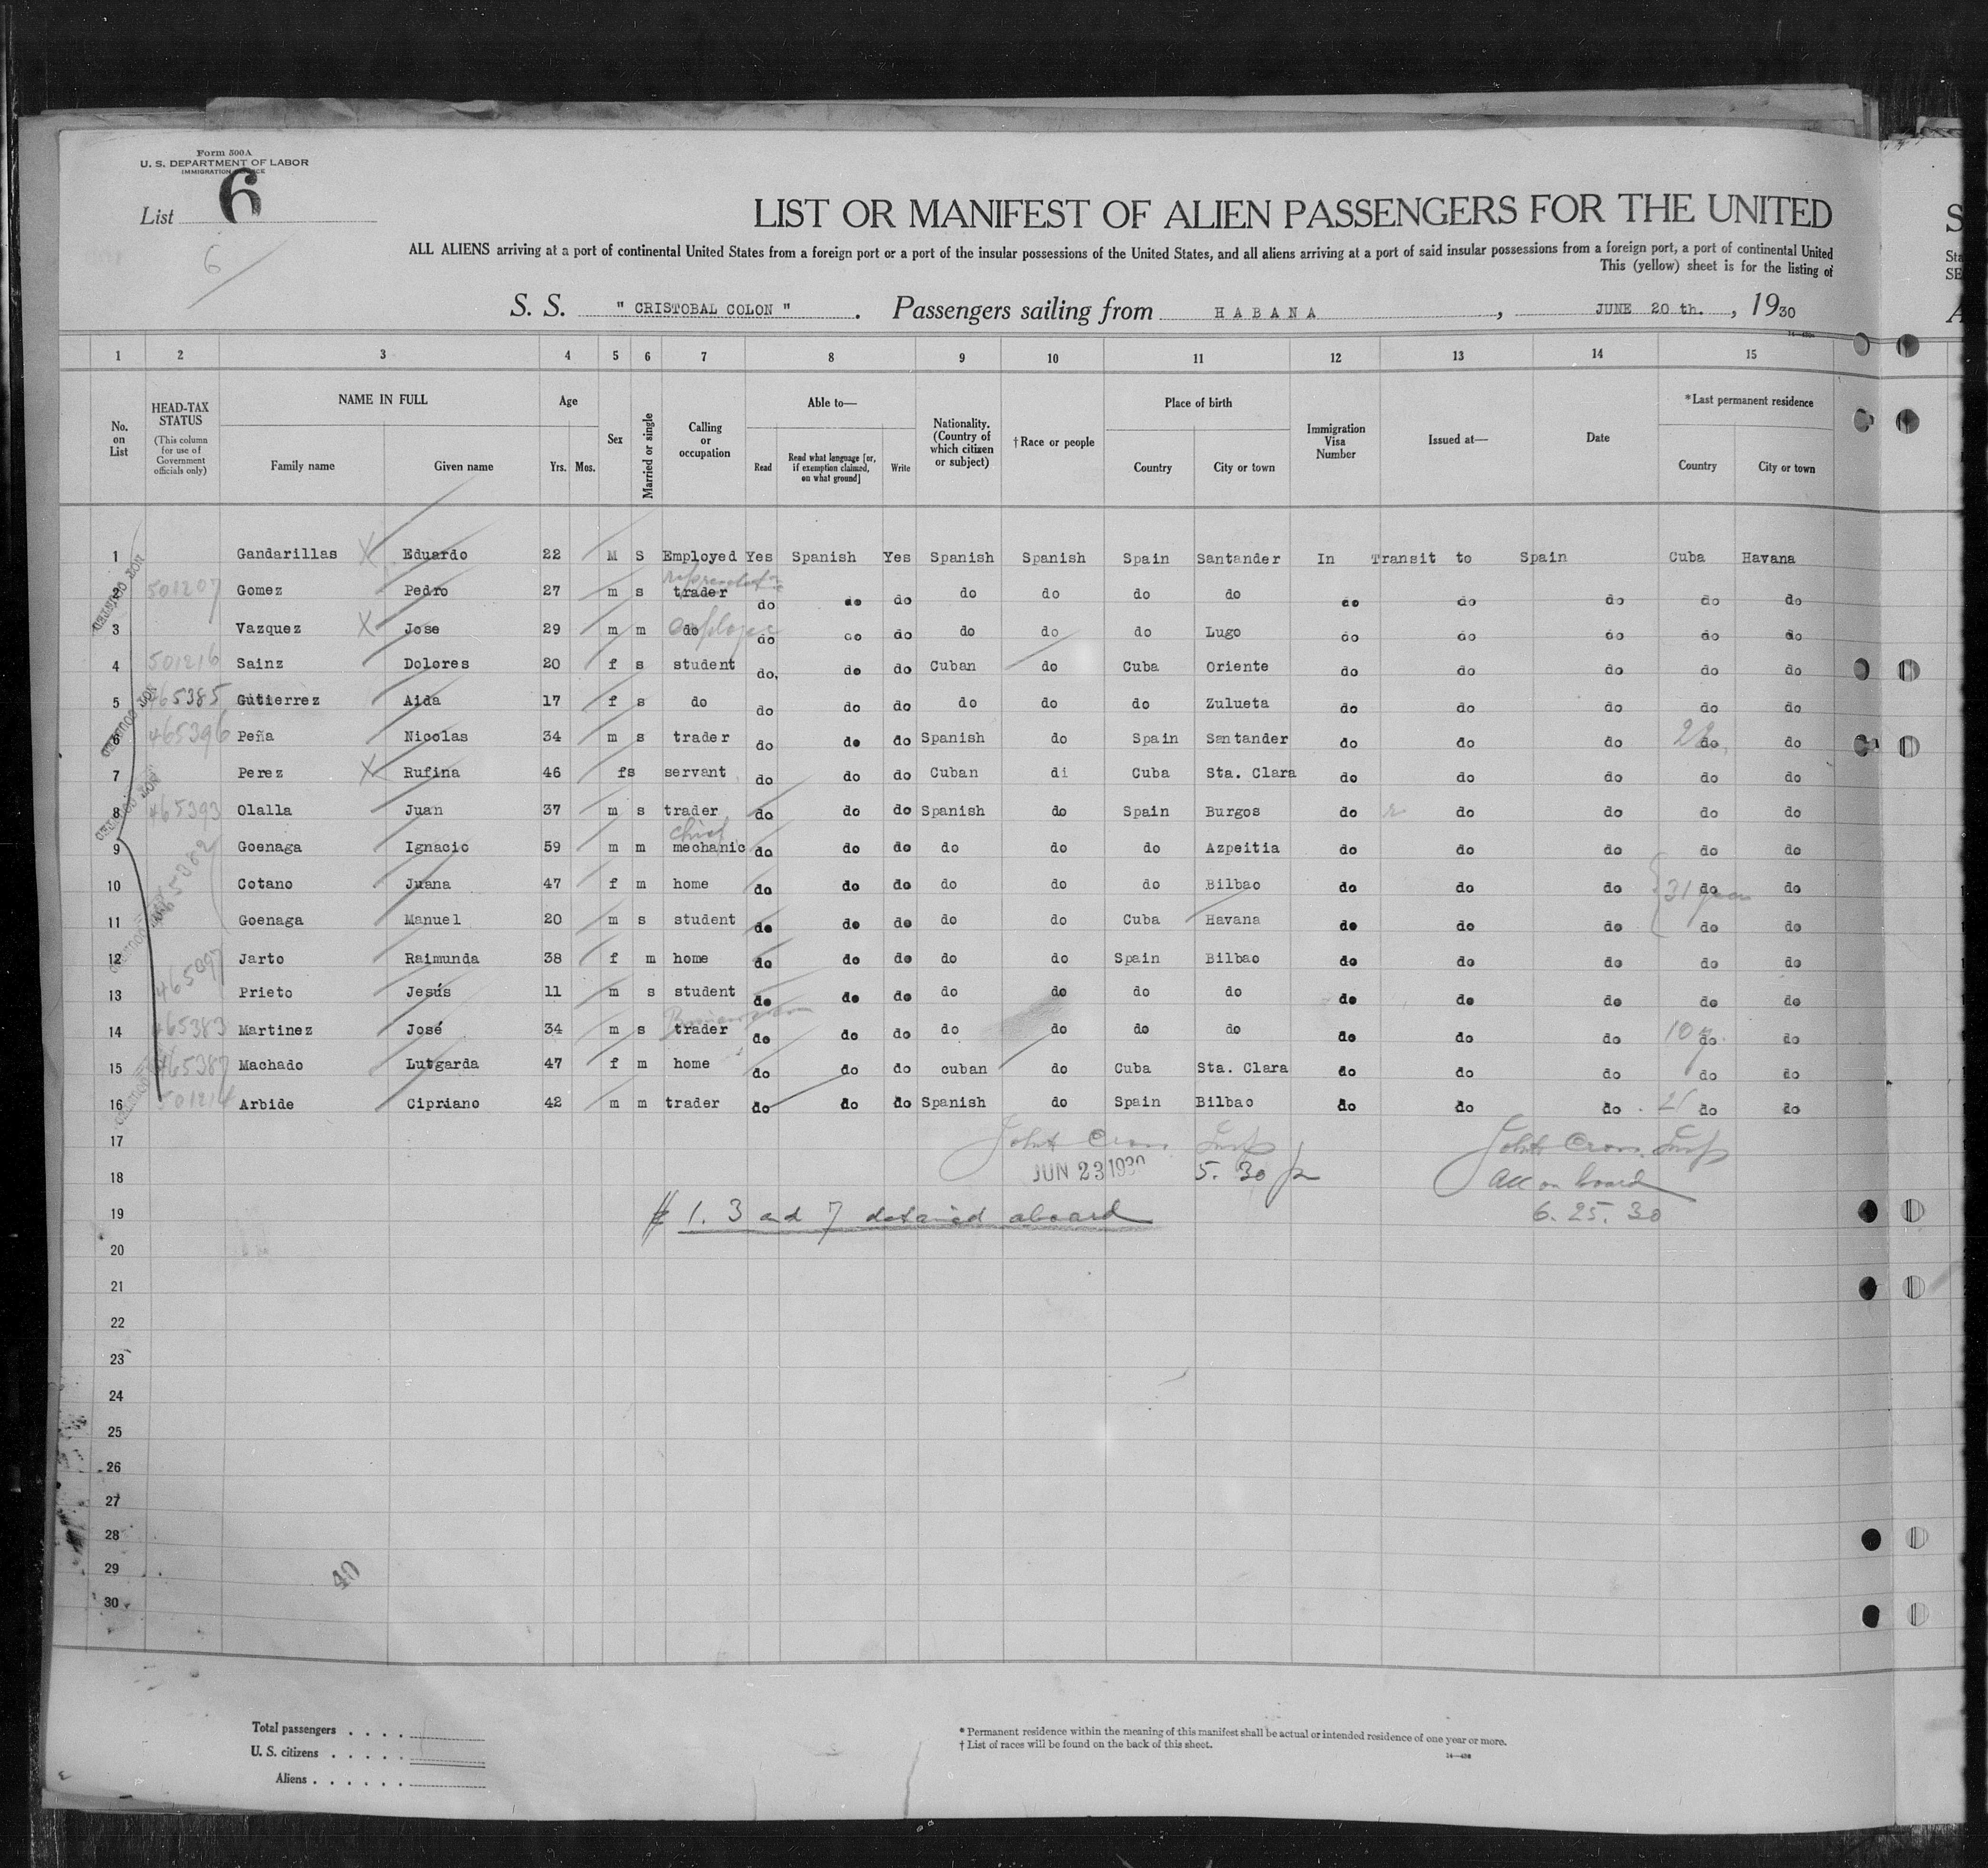 Form 500A
U. S. DEPARTMENT OF LABOR
IMMIGRATION SERVICE
List 6
6
LIST OR MANIFEST OF ALIEN PASSENGERS FOR THE UNITED
ALL ALIENS arriving at a port of continental United States from a foreign port or a port of the insular possessions of the United States, and all aliens arriving at a port of said insular possessions from a foreign port, a port of continental United
This (yellow) sheet is for the listing of
S. S. " CRISTOBAL COLON " . Passengers sailing from HABANA , JUNE 20 th. , 1930
1 2 3 4 5 6 7 8 9 10 11 12 13 14 15
No. on List
HEAD-TAX STATUS (This column for use of Government officials only)
NAME IN FULL
Family name Given name
Age
Yrs. Mos.
Sex
Married or single
Calling or occupation
Able to—
Read Read what language [or, if exemption claimed, on what ground] Write
Nationality. (Country of which citizen or subject)
†Race or people
Place of birth
Country City or town
Immigration Visa Number
Issued at—
Date
*Last permanent residence
Country City or town
1 Gandarillas X Eduardo 22 M S Employed Yes Spanish Yes Spanish Spanish Spain Santander In Transit to Spain Cuba Havana
2 501207 Gomez Pedro 27 m s trader do do do do do do do do do do do do
3 Vazquez X Jose 29 m m do employee do do do do do do Lugo do do do do do
4 501216 Sainz Dolores 20 f s student do. do do Cuban do Cuba Oriente do do do do do
5 465385 Gutierrez Aida 17 f s do do do do do do do Zulueta do do do do do
6 465396 Peña Nicolas 34 m s trader do do do Spanish do Spain Santander do do do do do
7 Perez X Rufina 46 fs servant do do do Cuban di Cuba Sta. Clara do do do do do
8 465393 Olalla Juan 37 m s trader do do do Spanish do Spain Burgos do do do do do
chief
9 Goenaga Ignacio 59 m m mechanic do do do do do do Azpeitia do do do do do
10 Cotano Juana 47 f m home do do do do do do Bilbao do do do do do
31 years
11 Goenaga Manuel 20 m s student do do do do do Cuba Havana do do do do do
12 Jarto Raimunda 38 f m home do do do do do Spain Bilbao do do do do do
13 Prieto Jesús 11 m s student do do do do do do do do do do do do
14 465383 Martinez José 34 m s trader do do do do do do do do do do 10 y. do do
15 465387 Machado Lutgarda 47 f m home do do do cuban do Cuba Sta. Clara do do do do do
16 501214 Arbide Cipriano 42 m m trader do do do Spanish do Spain Bilbao do do do do do
17 John Cross Insp John Cross. Insp
18 JUN 23 1930 5.30 p All on board
19 # 1. 3 and 7 detained aboard 6. 25. 30
20
21
22
23
24
25
26
27
28
29
30
40
Total passengers
U. S. citizens
Aliens
* Permanent residence within the meaning of this manifest shall be actual or intended residence of one year or more.
† List of races will be found on the back of this sheet.